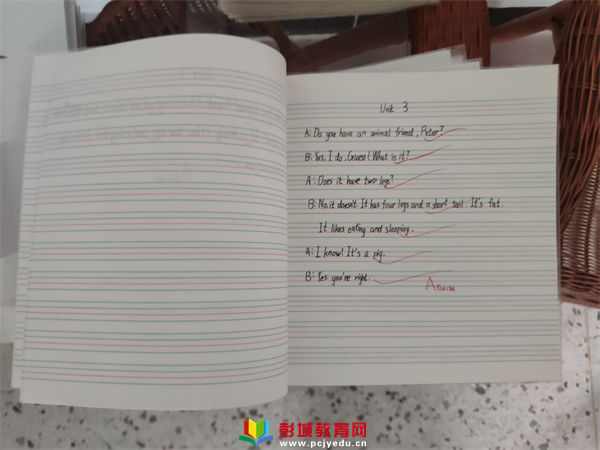 Unit 3
A: Do you have an animal friend, Peter?
B: Yes, I do. Guess! What is it?
A: Does it have two legs?
B: No, it doesn't. It has four legs and a short tail. It's fat.
It likes eating and sleeping.
A: I know! It's a pig.
B: Yes, you're right.
A
彭城教育网
www.pcjyedu.cn